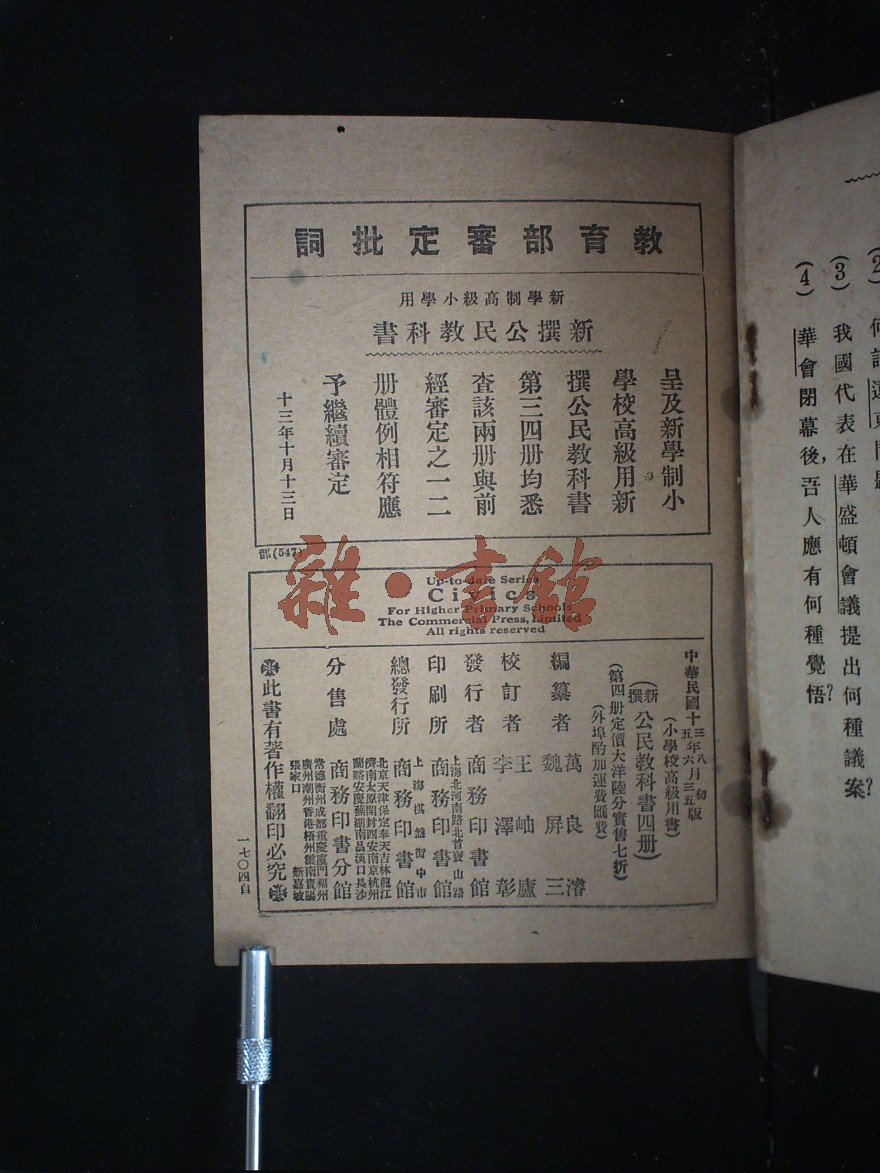 (2)
(3) 我國代表在華盛頓會議提出何種議案?
(4) 華會閉幕後,吾人應有何種覺悟?
教育部審定批詞
新學制高級小學用
新撰公民教科書
呈及新學制小
學校高級用新
撰公民教科書
第三四册均悉
查該兩册與前
經審定之一二
册體例相符應
予繼續審定
十三年十月十三日
部(547)
雜·書館
Up-to-date Series
Civics
For Higher Primary Schools
The Commercial Press, Limited
All rights reserved
中華民國十三年八月初版
五年六月三五版
(小學校高級用書)
(新撰公民教科書四册)
(第四册定價大洋陸分實售七折)
(外埠酌加運費匯費)
編纂者 萬良濬
魏屏三
校訂者 王岫廬
李澤彰
發行者 商務印書館
印刷所 上海北河南路北首寶山路
商務印書館
總發行所 上海棋盤街中市
商務印書館
分售處 北京天津保定奉天吉林龍江
濟南太原開封西安南京杭州
蘭谿安慶蕪湖南昌漢口長沙
商務印書分館
常德衡州成都重慶廈門福州
廣州潮州香港梧州雲南貴陽
張家口 新嘉坡
此書有著作權翻印必究
一七〇四自